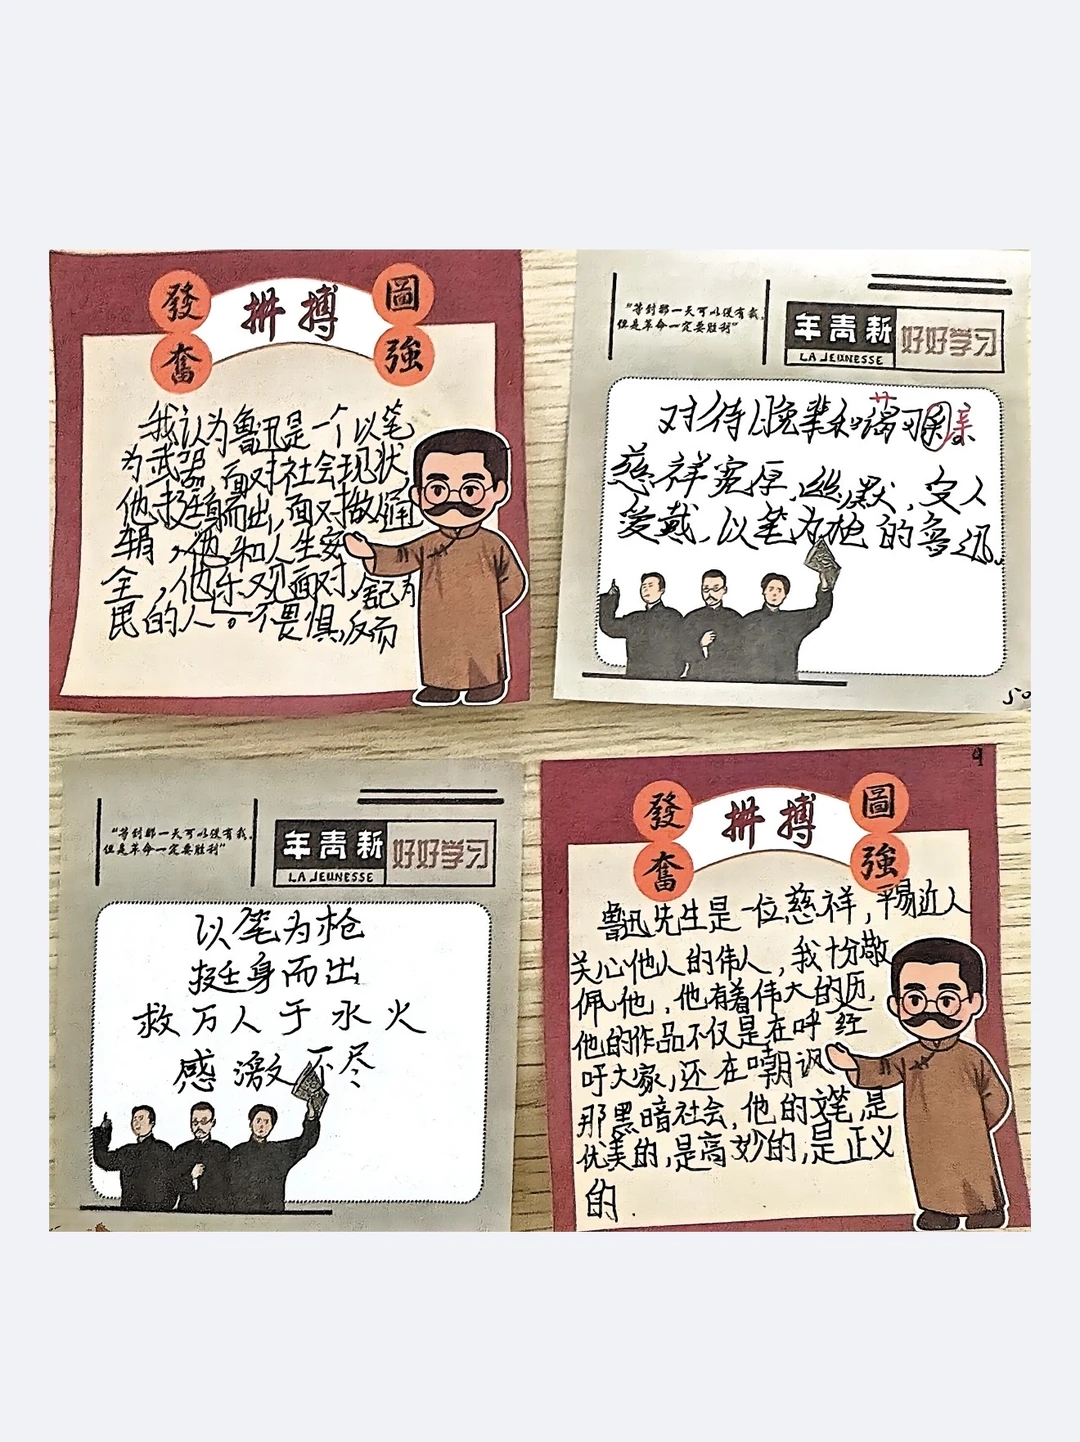 發奮
拼搏
圖強
我认为鲁迅是一个以笔
为武器,面对社会现状
他挺身而出,面对撤通
辑,他和人生安
全,他乐观面对,舍己为
民的人。不畏惧,反而
"等到那一天可以没有我,
但是革命一定要胜利"
年青新
LA JEUNESSE
好好学习
对待晚辈和
慈祥宽厚,幽默,受人
爱戴,以笔为枪的鲁迅.
50
"等到那一天可以没有我,
但是革命一定要胜利"
年青新
LA JEUNESSE
好好学习
以笔为枪
挺身而出
救万人于水火
感激不尽
9
發奮
拼搏
圖強
鲁迅先生是一位慈祥,平易近人
关心他人的伟人,我十分敬
佩他,他有着伟大的历
他的作品不仅是在呼经
吁大家,还在嘲讽
那黑暗社会,他的文笔是
优美的,是高妙的,是正义
的.